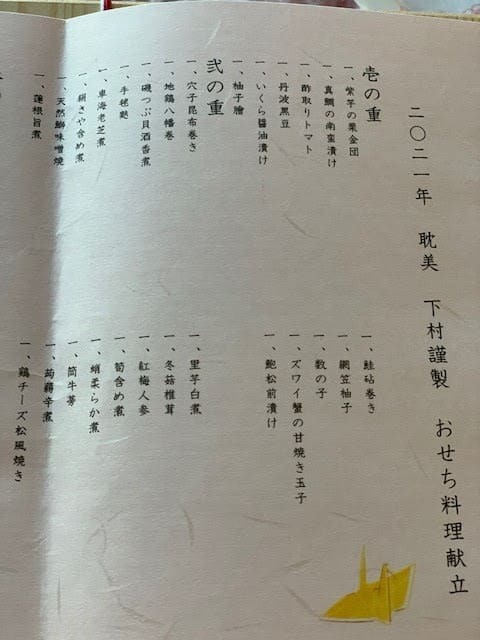 二〇二一年 耽美 下村謹製 おせち料理献立
壱の重
一、紫芋の栗金団
一、真鯛の南蛮漬け
一、酢取りトマト
一、丹波黒豆
一、いくら醤油漬け
一、柚子膾
一、鮭砧巻き
一、網笠柚子
一、数の子
一、ズワイ蟹の甘焼き玉子
一、鮑松前漬け
弐の重
一、穴子昆布巻き
一、地鶏八幡巻
一、磯つぶ貝酒香煮
一、手毬麩
一、車海老芝煮
一、絹さや含め煮
一、天然鰤味噌焼
一、蓮根旨煮
一、里芋白煮
一、冬菇椎茸
一、紅梅人参
一、筍含め煮
一、蛸柔らか煮
一、筒牛蒡
一、蒟蒻辛煮
一、鶏チーズ松風焼き